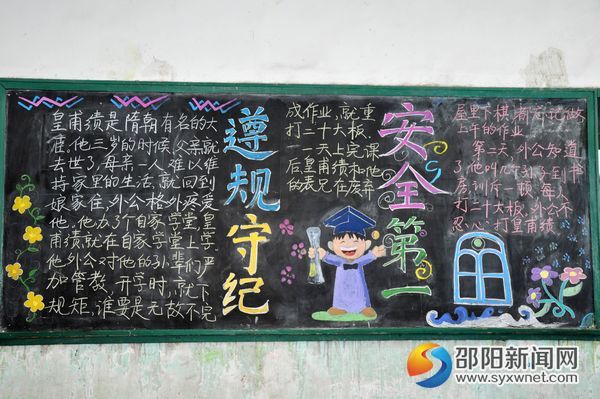 皇甫绩是隋朝有名的大
臣。他三岁的时候,父亲就
去世了,母亲一人难以维
持家里的生活,就回到
娘家住,外公格外疼爱
他。他办了个自家学堂,皇
甫绩就在自家学堂上学。
他外公对他的孙辈们严
加管教,开学时,就下
规矩,谁要是无故不完
遵规守纪
成作业,就重
打二十大板,
一天上完课
后皇甫绩和他
的表兄在废弃
安全第一
屋里下棋,
上午的作业。
第二天,外公知道
了,他叫
训斥一顿,每人
打二十大板,外公不
忍心打皇甫绩
邵阳新闻网
www.syxwnet.com